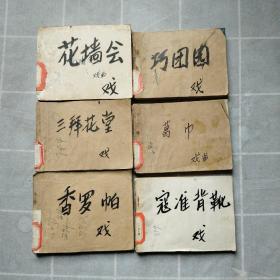 花墙会
戏曲
戏
巧团园
戏
三拜花堂
戏
葛巾
戏曲
香罗帕
戏
寇准背靴
戏